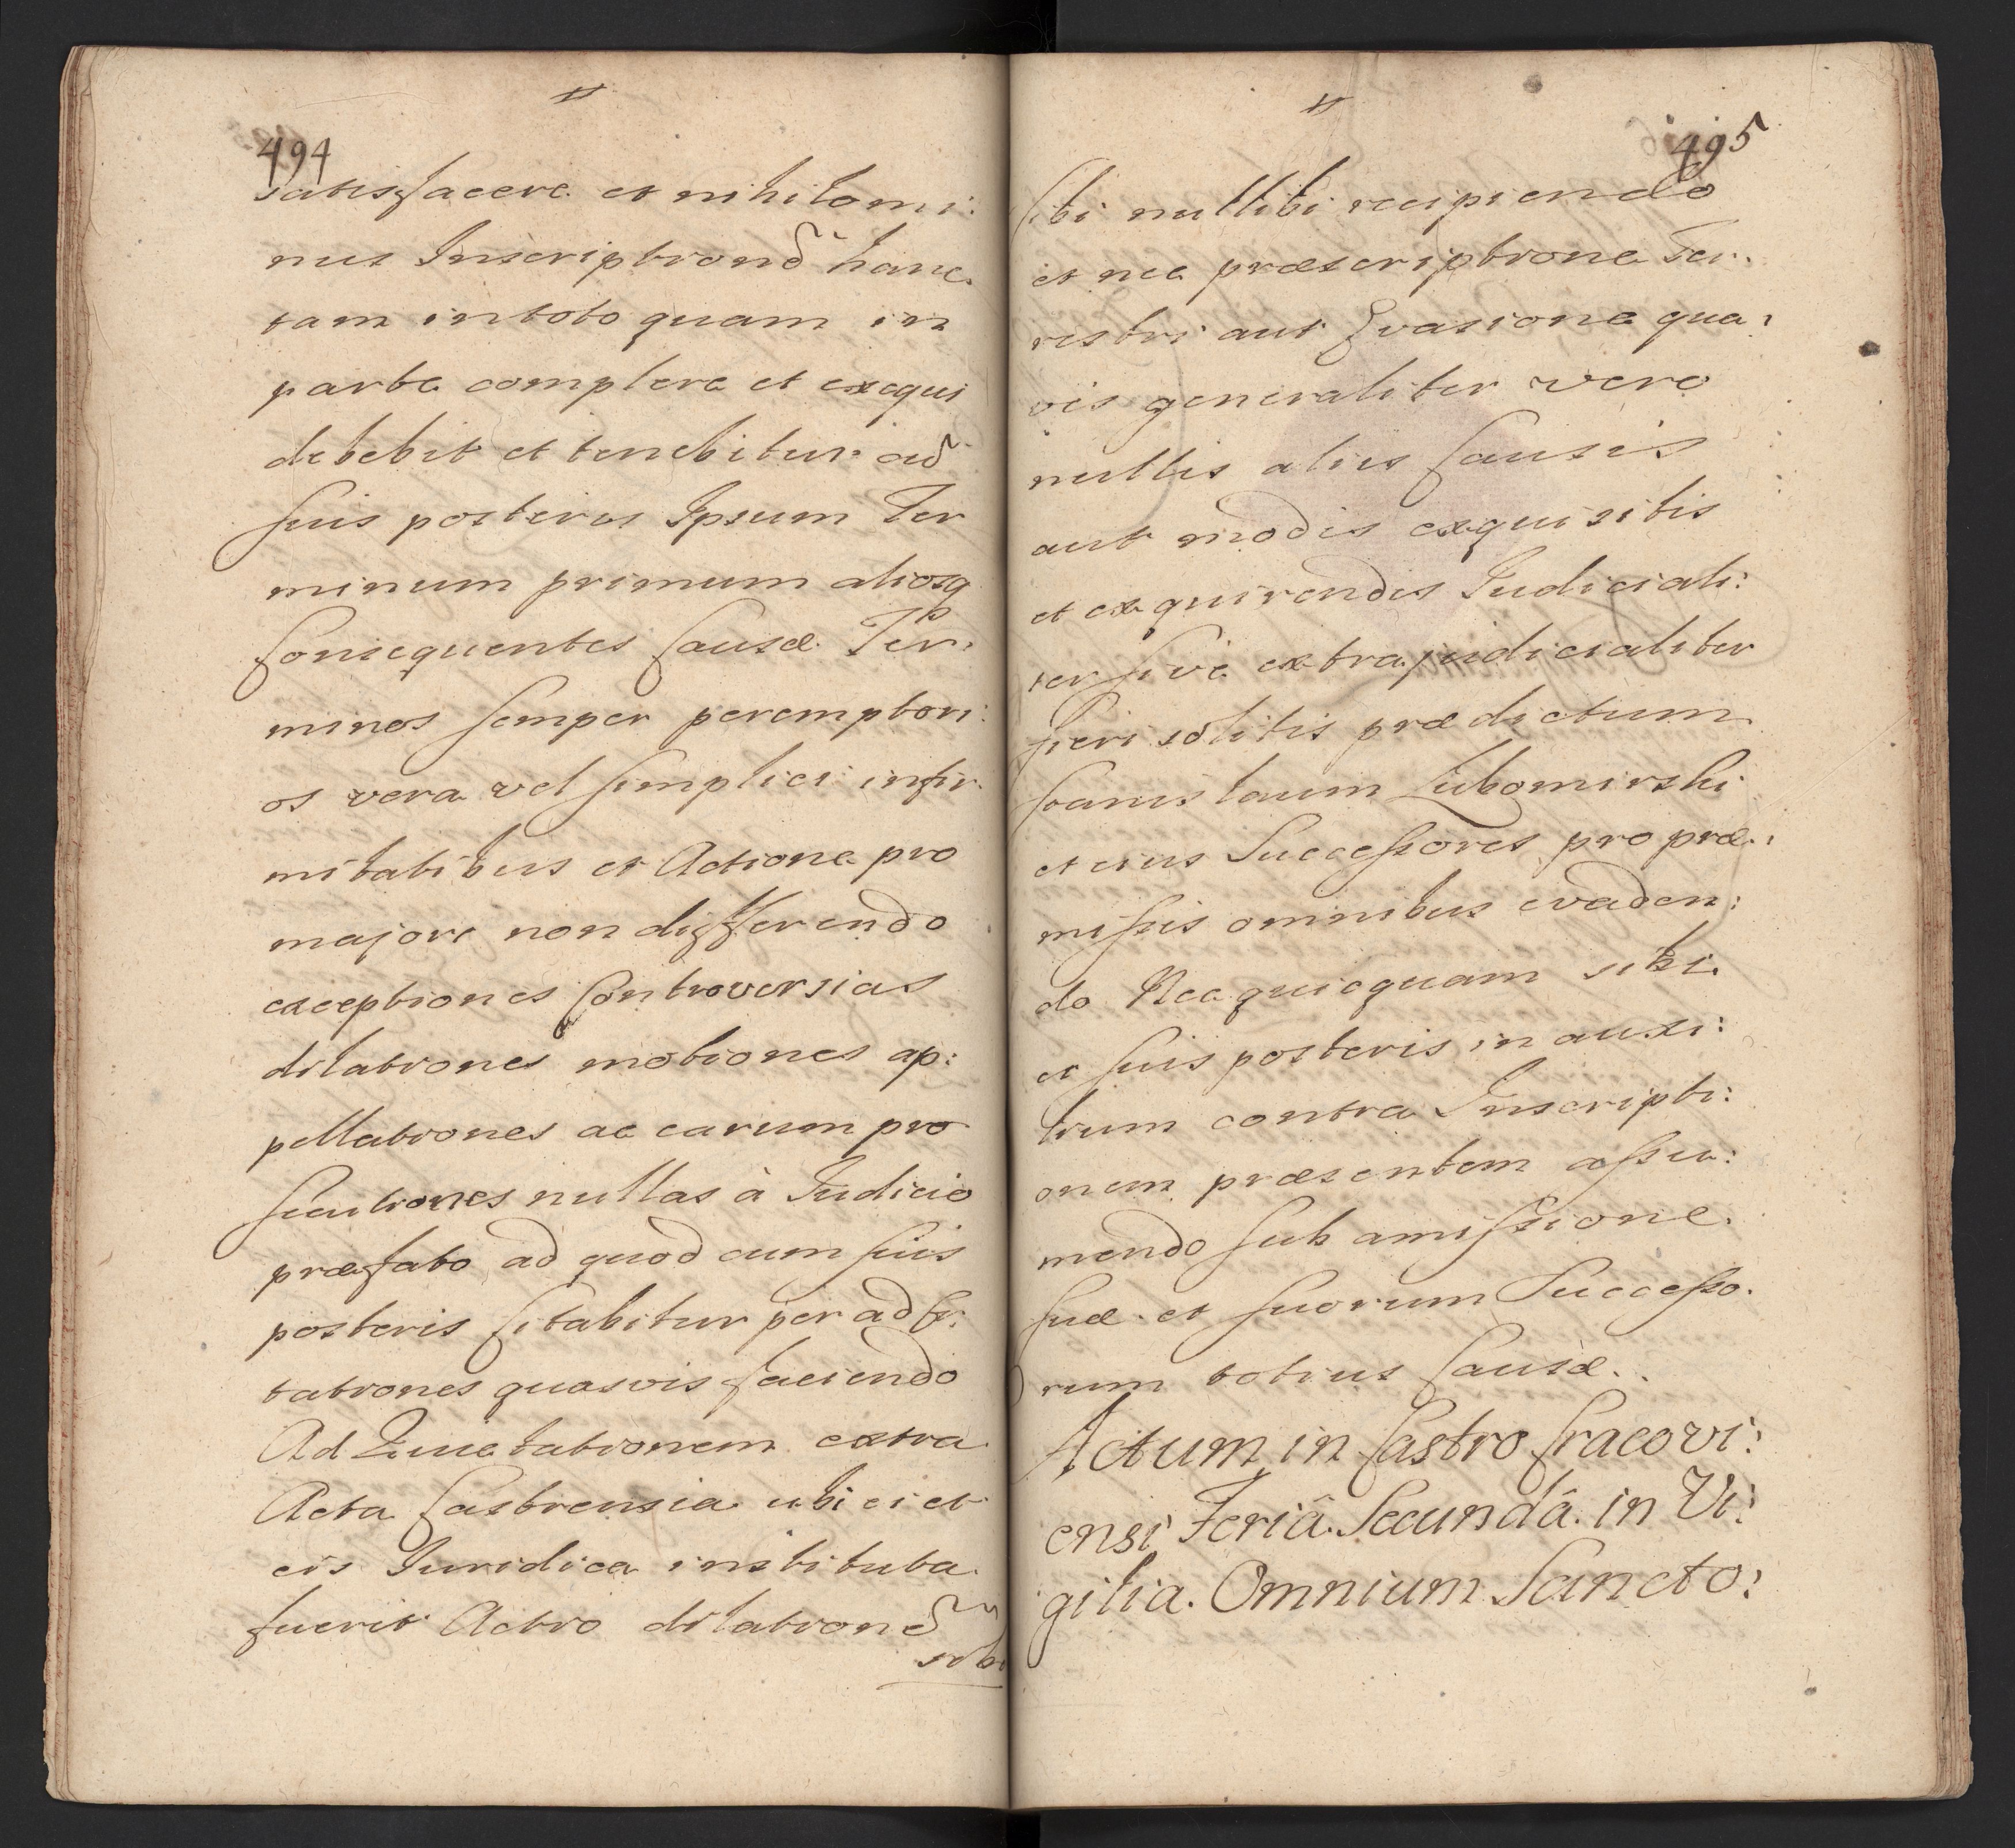 494
satisfacere et nihilomi:
nus Inscriptiond hanc
tam in toto quam in
parte complere et exequi
debebit et tenebitur ad
suis posteris Ipsum Ter
minum primum aliosq
Consequentes Causæ Ter:
minos semper peremptori:
os vera vel simplici infir
mitatibus et Actione pro
majori non differendo
exceptiones Controversias
dilationes motiones ap:
pellationes ac earum pro
secutiones nullas à Iudicio
præfato ad quod cum suis
posteris Citabitur per ad Ci:
tationes quasvis faciendo
Ad Quietationem extra
Acta Castrensia ubi ei et
eis Iuridica instituta
fuerit Actio dilationẽ
sibi
495
sibi nullibi recipiendo
et nec præscriptione Ter:
restri aut Evasione qua:
vis generaliter vero
nullis aliis Causis
aut modis exquisitis
et exquirendis Iudiciali:
ter sive extrajudicialiter
fieri solitis prædictum
Stanislaum Lubomirski
et eius Successores pro præ:
missis omnibus evaden:
do Nec quicquam sibi
et suis posteris in auxi:
lium contra Inscripti:
onem præsentem assu:
mendo sub amissione
suæ et suorum Successo:
rum totius Causæ..
Actum in Castro Cracovi:
ensi Feriâ Secundâ in Vi:
gilia Omnium Sancto: